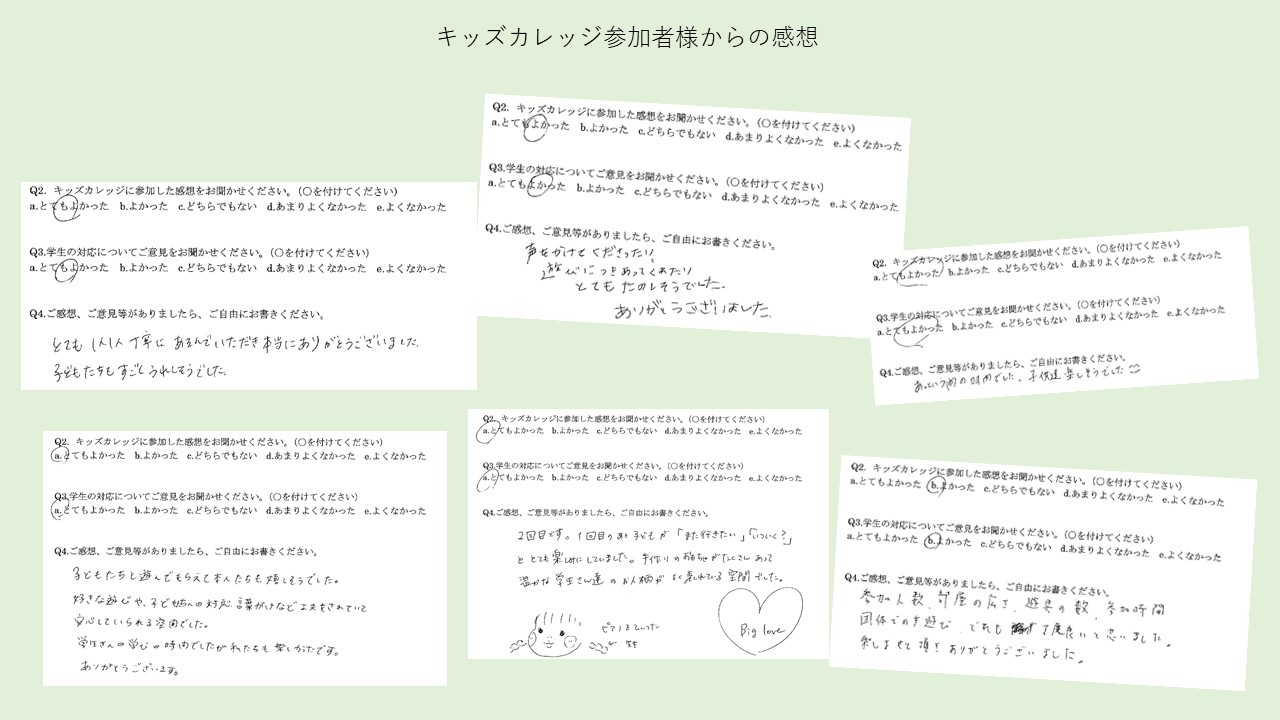 キッズカレッジ参加者様からの感想
Q2. キッズカレッジに参加した感想をお聞かせください。(○を付けてください)
a.とてもよかった b.よかった c.どちらでもない d.あまりよくなかった e.よくなかった
Q3.学生の対応についてご意見をお聞かせください。(○を付けてください)
a.とてもよかった b.よかった c.どちらでもない d.あまりよくなかった e.よくなかった
Q4.ご感想、ご意見等がありましたら、ご自由にお書きください。
とても1人1人丁寧にあそんでいただき本当にありがとうございました。
子どもたちもすごくうれしそうでした。
Q2. キッズカレッジに参加した感想をお聞かせください。(○を付けてください)
a.とてもよかった b.よかった c.どちらでもない d.あまりよくなかった e.よくなかった
Q3.学生の対応についてご意見をお聞かせください。(○を付けてください)
a.とてもよかった b.よかった c.どちらでもない d.あまりよくなかった e.よくなかった
Q4.ご感想、ご意見等がありましたら、ご自由にお書きください。
声をかけてくださったり、
遊びにつきあってくれたり
とてもたのしそうでした。
ありがとうございました。
Q2. キッズカレッジに参加した感想をお聞かせください。(○を付けてください)
a.とてもよかった b.よかった c.どちらでもない d.あまりよくなかった e.よくなかった
Q3.学生の対応についてご意見をお聞かせください。(○を付けてください)
a.とてもよかった b.よかった c.どちらでもない d.あまりよくなかった e.よくなかった
Q4.ご感想、ご意見等がありましたら、ご自由にお書きください。
あっという間の時間でした、子供達楽しそうでした
Q2. キッズカレッジに参加した感想をお聞かせください。(○を付けてください)
a.とてもよかった b.よかった c.どちらでもない d.あまりよくなかった e.よくなかった
Q3.学生の対応についてご意見をお聞かせください。(○を付けてください)
a.とてもよかった b.よかった c.どちらでもない d.あまりよくなかった e.よくなかった
Q4.ご感想、ご意見等がありましたら、ご自由にお書きください。
子どもたちと遊んでもらえて本人たちも嬉しそうでした。
好きな遊びや、子どもへの対応、言葉がけなど工夫をされていて
安心していられる空間でした。
学生さんの学びの時間でしたがわたしたちも楽しかったです。
ありがとうございます。
Q2. キッズカレッジに参加した感想をお聞かせください。(○を付けてください)
a.とてもよかった b.よかった c.どちらでもない d.あまりよくなかった e.よくなかった
Q3.学生の対応についてご意見をお聞かせください。(○を付けてください)
a.とてもよかった b.よかった c.どちらでもない d.あまりよくなかった e.よくなかった
Q4.ご感想、ご意見等がありましたら、ご自由にお書きください。
2回目です。1回目のあと子どもが「また行きたい」「いついく?」
ととても楽しみにしていました。手作りのおもちゃがたくさんあって
温かな学生さん達のお人柄がよく表れている空間でした。
Big love
Q2. キッズカレッジに参加した感想をお聞かせください。(○を付けてください)
a.とてもよかった b.よかった c.どちらでもない d.あまりよくなかった e.よくなかった
Q3.学生の対応についてご意見をお聞かせください。(○を付けてください)
a.とてもよかった b.よかった c.どちらでもない d.あまりよくなかった e.よくなかった
Q4.ご感想、ご意見等がありましたら、ご自由にお書きください。
参加人数、部屋の広さ、遊具の数、参加時間
団体での手遊び、どれも丁度良いと思いました。
楽しませて頂きありがとうございました。